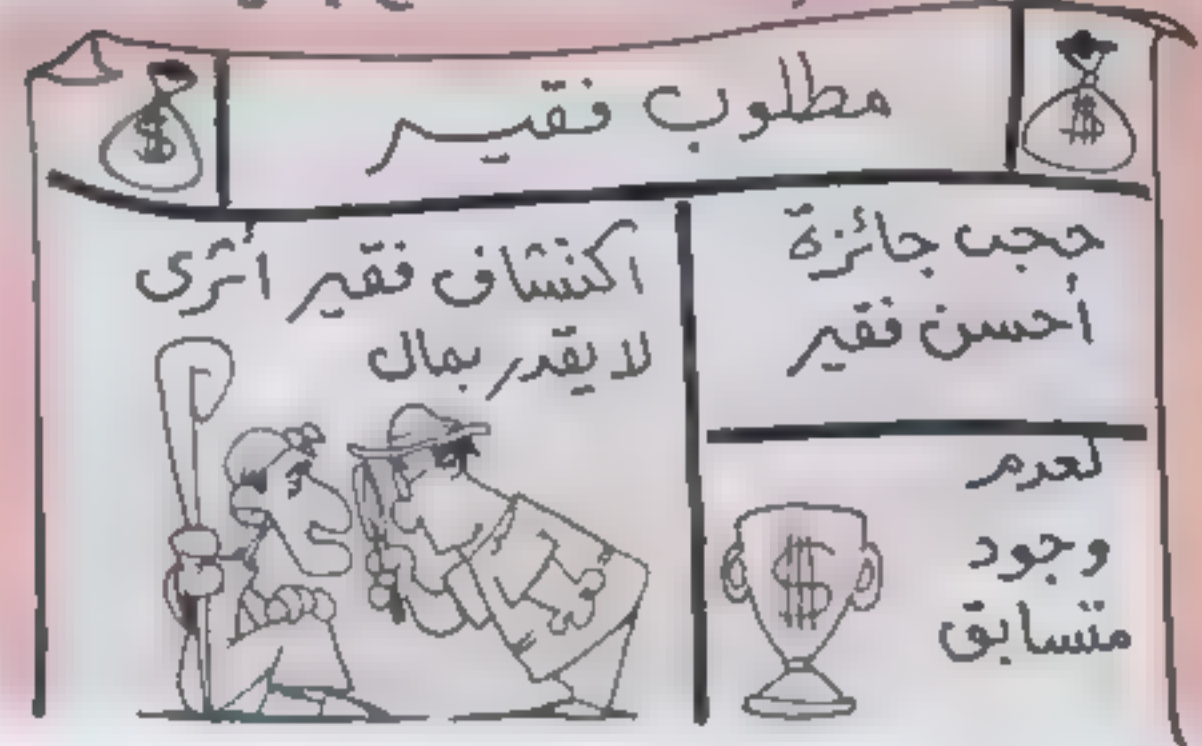 مطلوب فقير
حجب جائزة
أحسن فقير
لعدم
وجود
متسابق
اكتشاف فقير أثرى
لا يقدر بمال
$
$
$